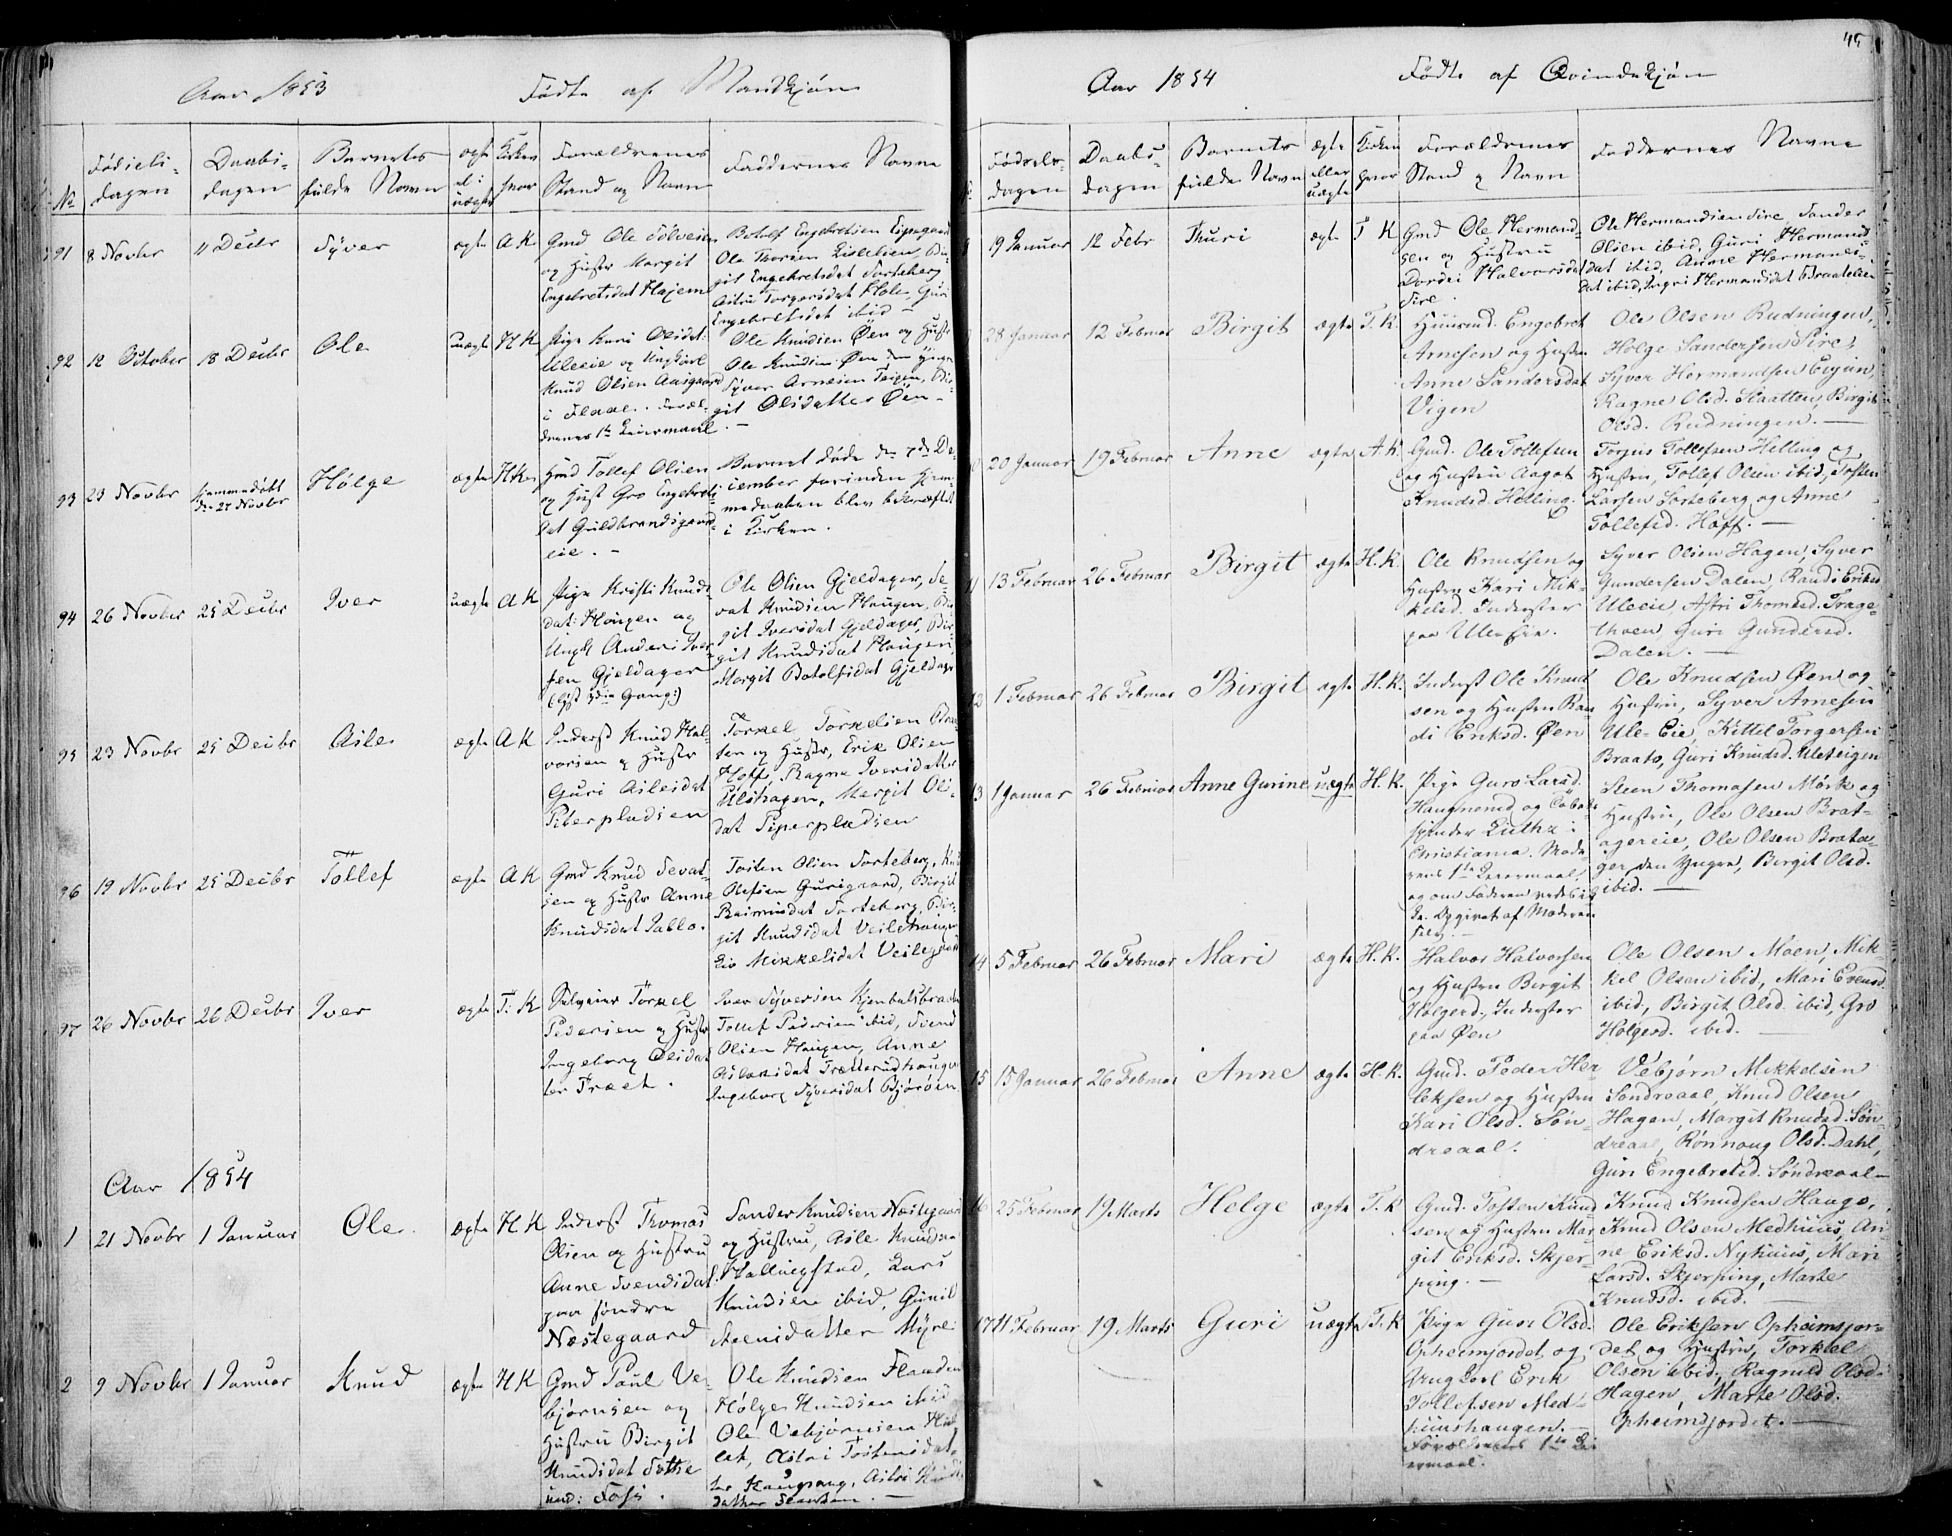 Aar 1853 Fødte af Mandkjøn
No Fødselsdagen Daabsdagen Barnets fulde Navn ægte el: uægte Kirken hvor Forældrenes Stand og Navn Faddernes Navne
91 8 Novbr 11 Decbr Syver ægte A K
Gmd Ole
og Hustr Margit
Engebretsdat Hajem
Botolf Engebretsen
Engebretsdat ibid
92 12 October 18 Decbr Ole uægte H K
Pige Kari Olsdat:
Uleeie og Ungkarl
Knud Olsen Aasgaard
i Flaae. Foræl-
drenes 1te Leiermaal.
Ole Knudsen Øen og Hustr
Ole Knudsen Øen den yngre
Syver Arnesen Teigen, Bir-
git Olsdatter Øen. –
93 23 Novbr hjemmedøbt den 27 Novbr Hølge ægte H K
Gmd Tollef Olsen
og Hust Gro Engebrets-
dat Guldbrandsgaard-
eie. –
Barnet døde den 7de De-
cember forinden Hjem-
medaaben blev bekræftet
i Kirken.
94 26 Novbr 25 Decbr Iver uægte A K
Pige Kristi Knuds-
dat: Haugen og
Ungk Anders Iver-
sen Gjeldager
Ole Olsen Gjeldager, Se-
vat Knudsen Haugen, Bir-
git Iversdat Gjeldager, Bir-
git Knudsdat Haugen,
Margit Botolfsdat Gjeldager
95 23 Novbr 25 Decbr Asle ægte A K
Inderst Knud Hal-
vorsen og Hustr
Guri Aslesdat
Piperpladsen
Torkel Torkelsen
og Hustr, Erik Olsen
Hoff, Ragne Iversdatter
Margit Ols-
dat Piperpladsen
96 19 Novbr 25 Decbr Tollef ægte A K
Gmd Knud Sevat-
sen og Hustr Anne
Knudsdat Sablo.
Tosten Olsen Sorteberg, Knud
Olefsen Gurigaard, Birgit
Sorteberg, Bir-
git Knudsdat Veilehaugen
Liv Mikkelsdat
97 26 Novbr 26 Decbr Iver ægte T: K
Selveier Torkel
Pedersen og Hustr
Ingeborg Olsdat-
ter Træet.
Iver Syversen Kjenbalsbraaten
Tollef Pedersen ibid, Svend
Olsen Haugen, Anne
Aslaksdat Trætterudhaugen
Ingeborg Syversdat Bjørøen
Aar 1854
1 21 Novbr 1 Januar Ole ægte H K
Inderst Thomas
Olsen og Hustru
Anne Svendsdat
paa søndre
Næstegaard
Sander Knudsen Næstegaard
og Hustru, Asle Knudsen
Hallingstad, Lars
Knudsen ibid, Gunil
Steensdatter Myre.
2 9 Novbr 1 Januar Knud ægte H K
Gmd Paul Ve-
bjørnsen og
Hustru Birgit
Knudsdat
Ole Knudsen Flaaden
Hølge Knudsen ibid
Ole Vebjørnsen
Aslri Tostensdat-
ter Aslri Knuds-
datter
45
Aar 1854 Fødte af Qvindekjøn
Fødselsdagen Daabsdagen Barnets fulde Navn ægte eller uægte Kirken hvor Forældrenes Stand og Navn Faddernes Navne
8 19 Januar 12 Febr Thuri ægte T K
Gmd Ole Hermand-
sen og Hustru
Dordei Halvorsdat
Sire.
Ole Hermandsen Sire, Sander
Olsen ibid, Guri Hermands-
dat ibid, Anne Hermands-
dat ibid, Ingri Hermandsdat Braatelien
9 28 Januar 12 Februar Birgit ægte T. K.
Huusmd. Engebret
Arnesen og Hustru
Anne Sandersdat
Vigen
Ole Olsen Rudningen,
Holge Sandersen Sire,
Syver Hermandsen
Ragne Olsd. Slaatten, Birgit
Olsd. Rudningen. –
10 20 Januar 19 Februar Anne ægte A. K.
Gmd. Ole Tollefsen
og Hustru Aagot
Knudsd. Helling.
Torgus Tollefsen Helling og
Hustru, Tollef Olsen ibid, Tosten
Larsen Sorteberg og Anne
Tollefsd. Hoff. –
11 13 Februar 26 Februar Birgit ægte H. K.
Ole Knudsen og
Hustru Kari Mik-
kelsd. Inderster
paa Uleeie.
Syver Olsen Hagen, Syver
Gundersen Dalen, Randi Eriksd.
Uleeie, Astri Thomasd. Trage-
thoen, Guri Gundersd.
Dalen. –
12 1 Februar 26 Februar Birgit ægte H. K.
Inderst Ole Knud-
sen og Hustru Ran-
di Eriksd. Øen
Ole Knudsen Øen og
Hustru, Syver Arnesen
Ule-Eie, Kittel Torgersen
Braato, Guri Knudsd. Uleteigen
13 1 Januar 26 Februar Anne Gurine uægte H. K.
Pige Guro Larsd.
Haugnerud og
i
Christiania. Mode-
rens 1te Leiermaal,
og om Faderen vides
Opgivet af Moderen
selv.
Steen Thomasen Mørk og
Hustru, Ole Olsen Brat-
agereie, Ole Olsen Brata-
ger den Yngre, Birgit Olsd.
ibid. –
14 5 Februar 26 Februar Mari ægte H. K.
Halvor Halvorsen
og Hustru Birgit
Holgersd., Inderster
paa Øen
Ole Olsen Moen, Mik-
kel Olsen ibid, Mari Evensd.
ibid, Birgit Olsd. ibid, Gro
Holgersd. ibid.
15 15 Januar 26 Februar Anne ægte H. K.
Gmd. Peder Her-
leksen og Hustru
Kari Olsd. Søn-
dreaal.
Vebjørn Mikkelsen
Søndreaal, Knud Olsen
Hagen, Margit Knudsd. Søn-
dreaal, Rønnaug Olsd. Dahl,
Guri Engebretsd. Søndreaal –
16 25 Februar 19 Marts Helge ægte T. K
Gmd. Tosten Knud-
sen og Hustru Mar-
git Eriksd. Skjer-
ping. –
Knud Knudsen Hauge,
Knud Olsen Medhuus, An-
ne Eriksd. Nyhuus, Mari
Larsd. Skjerping, Marte
Knudsd. ibid. –
17 11 Februar 19 Marts Guri uægte T. K
Pige Guri Olsd.
Opheimjordet og
Ungkarl Erik
Tollefsen Med-
huushaugen. –
Forældrenes 1te Lei-
ermaal.
Ole Eriksen Opheimsjor-
det og Hustru, Torkel
Olsen ibid, Ragnild Olsd.
Hagen, Marte Olsd.
Opheimsjordet. –